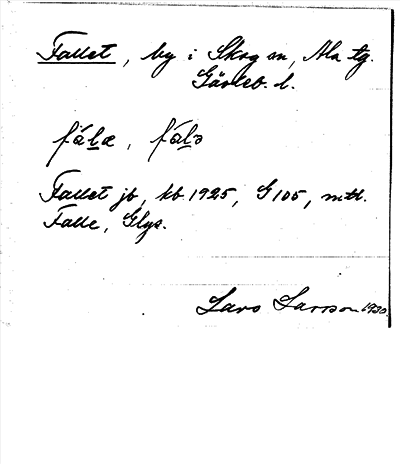 Fallet, by i Skog sn, Ala tg.
Gävleb. l.
fàlæ, fàlə
Fallet jb, kb 1925, G 105, mtl.
Falle, Glys.
Lars Larsson 1930.